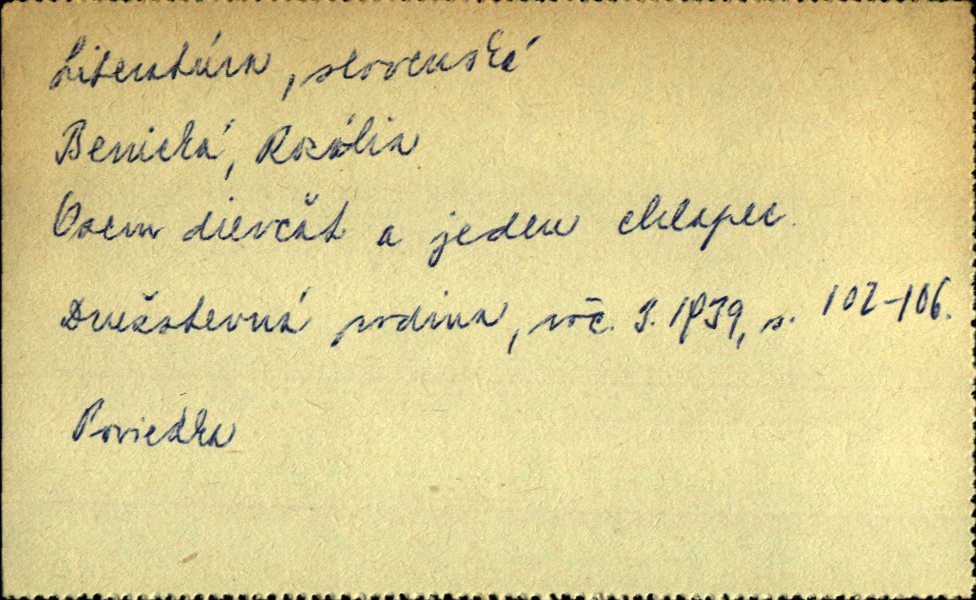 Literatúra, slovenská
Benická, Rozália
Osem dievčat a jeden chlapec.
Družstevná rodina, roč. 3. 1939, s. 102-106.
Poviedka